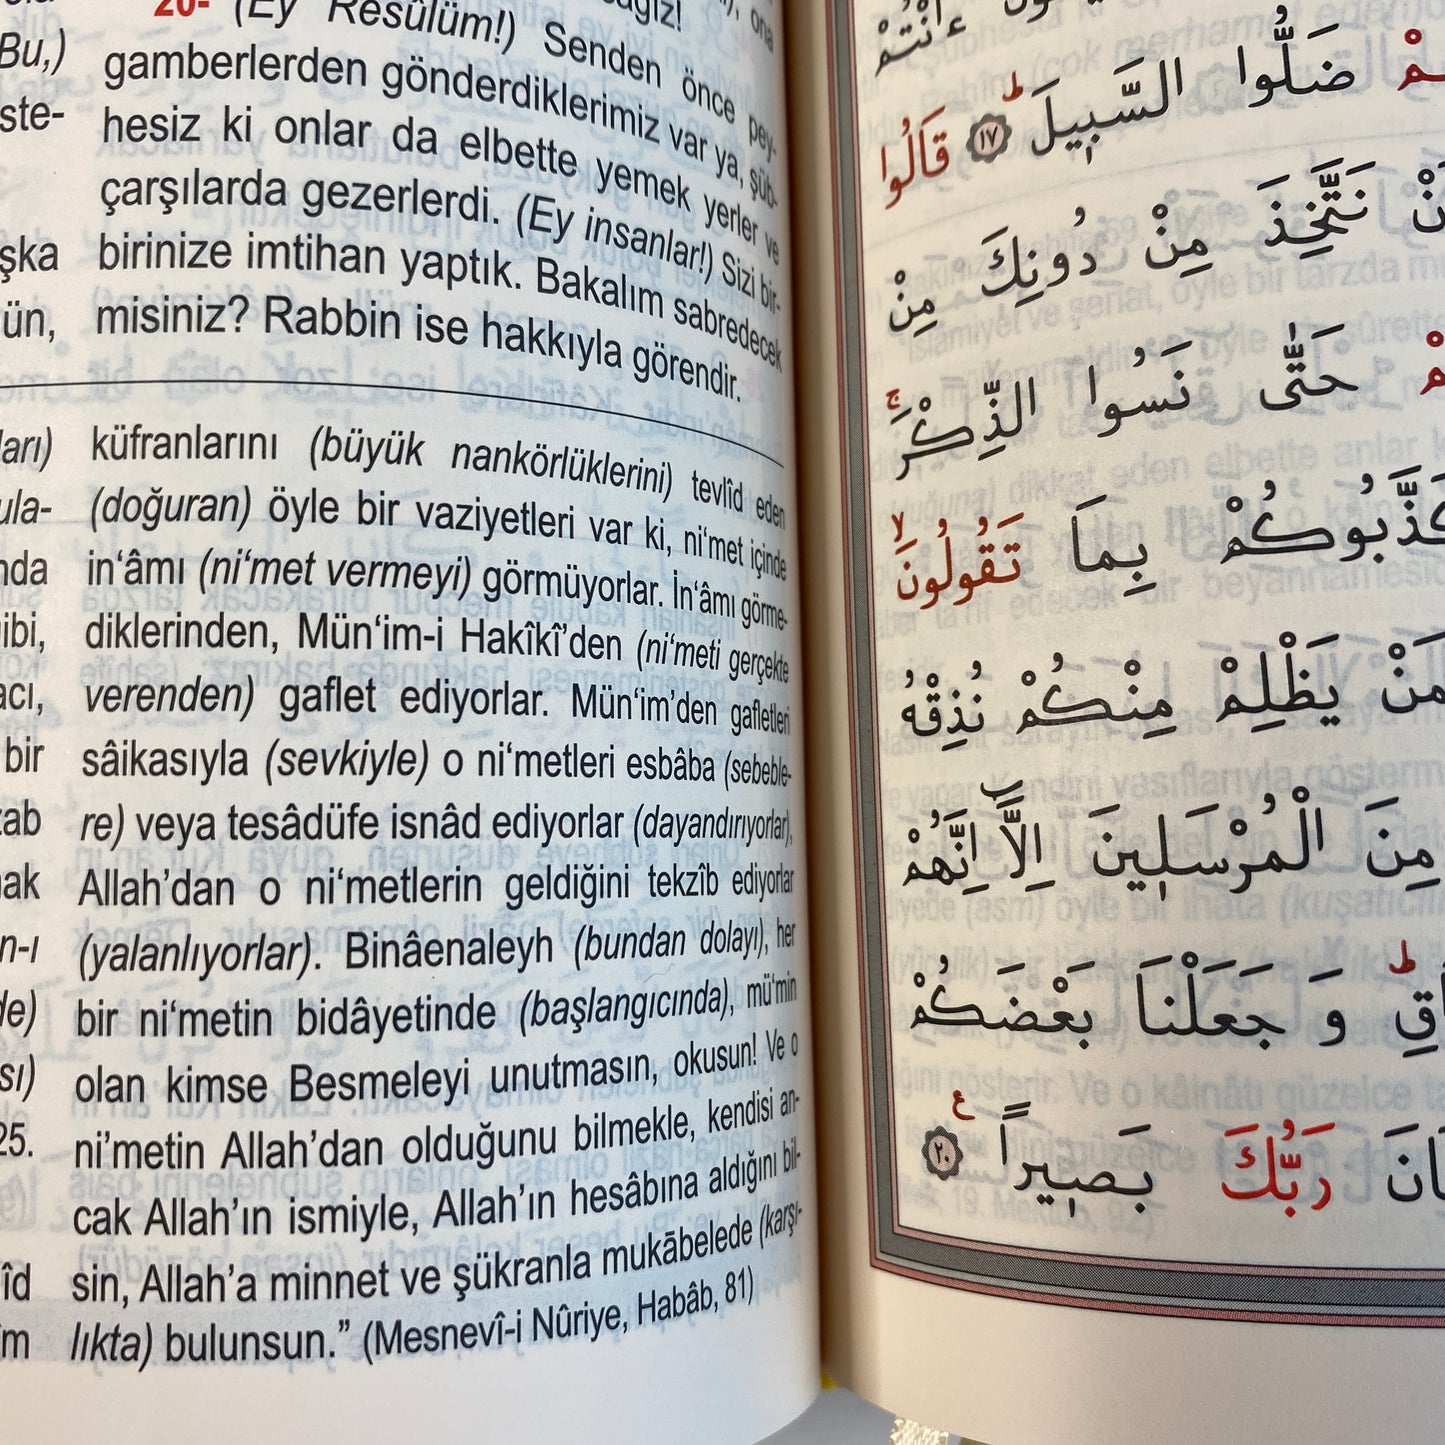 Bu,)
ste-
şka
ün,
20- (Ey Resûlüm!) Senden önce pey-
gamberlerden gönderdiklerimiz var ya, şüb-
hesiz ki onlar da elbette yemek yerler ve
çarşılarda gezerlerdi. (Ey insanlar!) Sizi bir-
birinize imtihan yaptık. Bakalım sabredecek
misiniz? Rabbin ise hakkıyla görendir.
ları)
ula-
nda
ibi,
acı,
bir
zab
n-ı
de)
sı)
25.
îd
îm
küfranlarını (büyük nankörlüklerini) tevlîd eden
(doğuran) öyle bir vaziyetleri var ki, ni‘met içinde
in‘âmı (ni‘met vermeyi) görmüyorlar. İn‘âmı görme-
diklerinden, Mün‘im-i Hakîkî’den (ni‘meti gerçekte
verenden) gaflet ediyorlar. Mün‘im’den gafletleri
sâikasıyla (sevkiyle) o ni‘metleri esbâba (sebeble-
re) veya tesâdüfe isnâd ediyorlar (dayandırıyorlar),
Allah’dan o ni‘metlerin geldiğini tekzîb ediyorlar
(yalanlıyorlar). Binâenaleyh (bundan dolayı), her
bir ni‘metin bidâyetinde (başlangıcında), mü’min
olan kimse Besmeleyi unutmasın, okusun! Ve o
ni’metin Allah’dan olduğunu bilmekle, kendisi an-
cak Allah’ın ismiyle, Allah’ın hesâbına aldığını bil-
sin, Allah’a minnet ve şükranla mukābelede (karşı-
lıkta) bulunsun.” (Mesnevî-i Nûriye, Habâb, 81)
ءَاَنْتُمْ
ضَلُّوا السَّبٖيلَ ۜ ﴿١٧﴾ قَالُوا
نَتَّخِذَ مِنْ دُونِكَ مِنْ
حَتّٰى نَسُوا الذِّكْرَ ۚ
كَذَّبُوكُمْ بِمَا تَقُولُونَ ۙ
مَنْ يَظْلِمْ مِنْكُمْ نُذِقْهُ
مِنَ الْمُرْسَلٖينَ اِلَّٓا اِنَّهُمْ
وَ جَعَلْنَا بَعْضَكُمْ
رَبُّكَ بَصٖيرًا ﴿٢٠﴾ ع